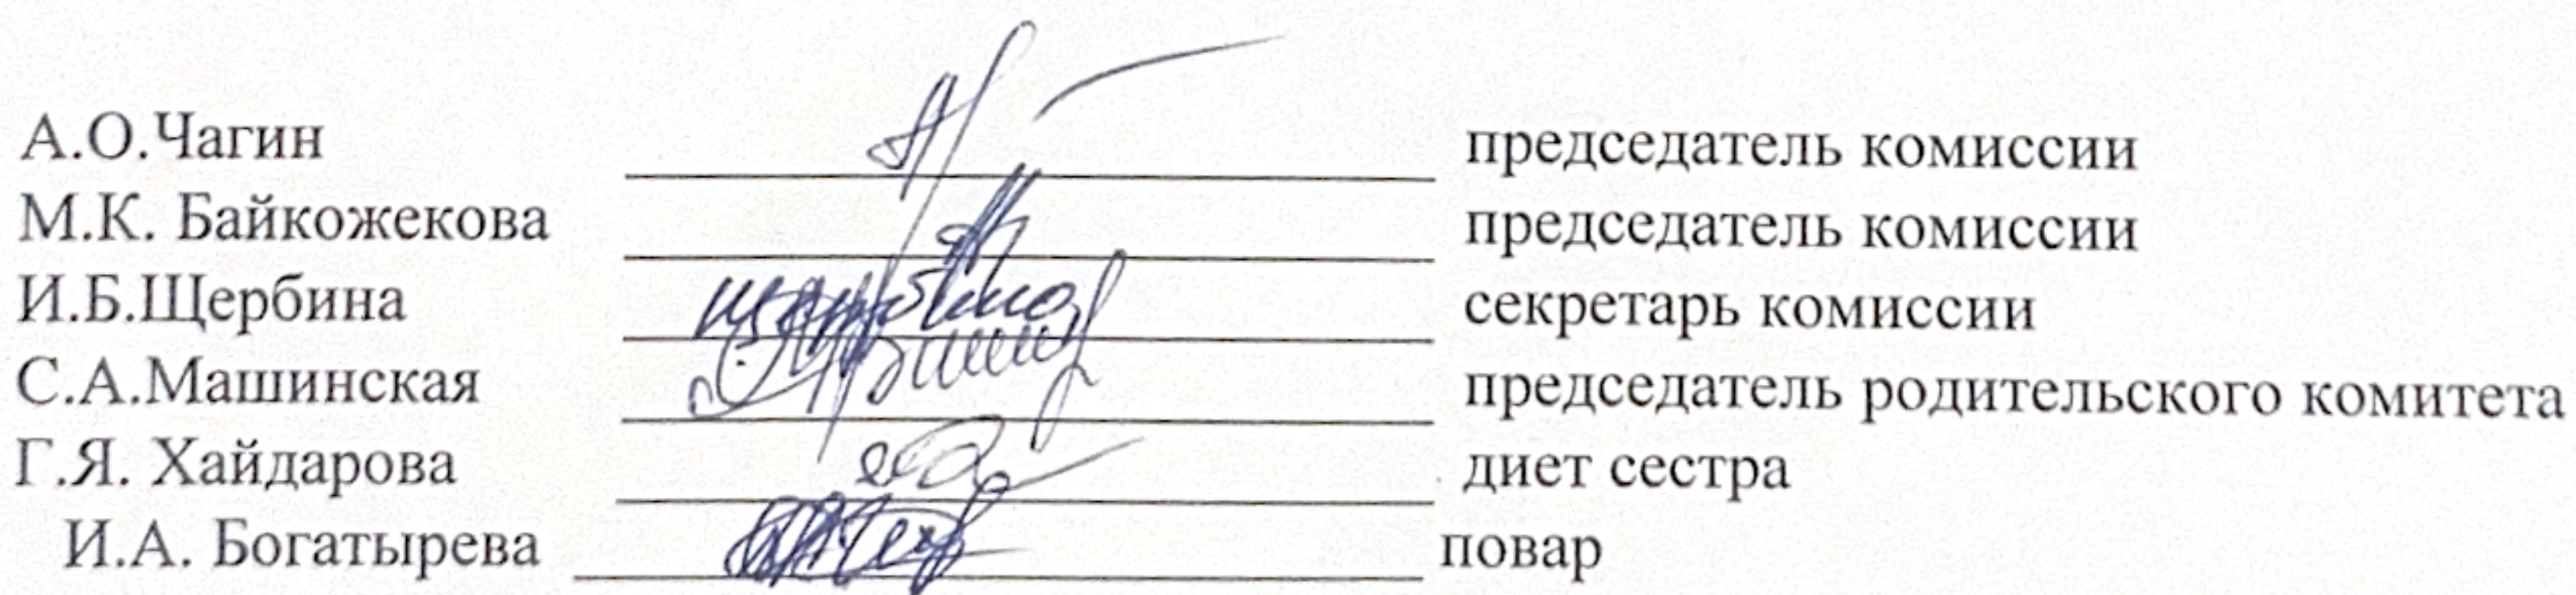 А.О.Чагин председатель комиссии
М.К. Байкожекова председатель комиссии
И.Б.Щербина Щербина секретарь комиссии
С.А.Машинская председатель родительского комитета
Г.Я. Хайдарова диет сестра
И.А. Богатырева повар